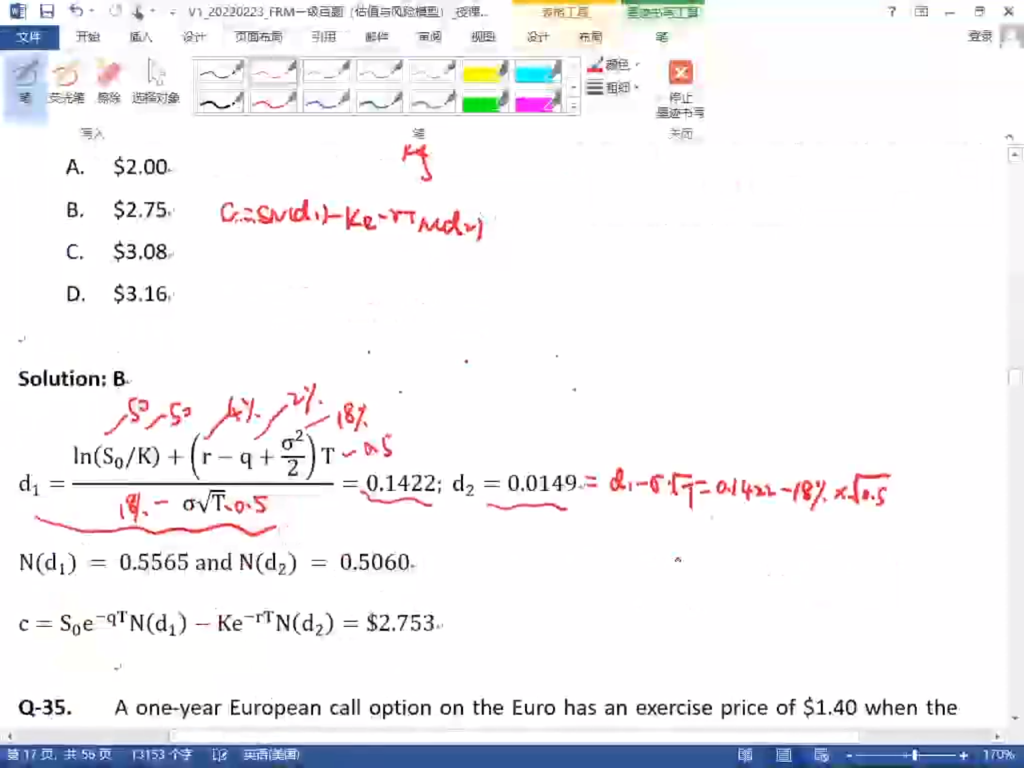 V1_20220223_FRM一级百题（估值与风险模型）_授课... 表格工具 墨迹书写工具
文件 开始 插入 设计 页面布局 引用 邮件 审阅 视图 设计 布局 笔 登录
笔 荧光笔 擦除 选择对象 颜色 粗细 停止墨迹书写
写入 笔 关闭
A. $2.00
B. $2.75
C=SN(d1)-Ke-rT N(d2)
C. $3.08
D. $3.16
Solution: B
50 50 4% 2% 18%
d₁ = ln(S₀/K) + (r − q + σ²/2) T / σ√T = 0.1422; d₂ = 0.0149 = d1-σ√T = 0.1422-18%×√0.5
0.5
18% 0.5
N(d₁) = 0.5565 and N(d₂) = 0.5060
c = S₀e^−qT N(d₁) − Ke^−rT N(d₂) = $2.753
Q-35. A one-year European call option on the Euro has an exercise price of $1.40 when the
第 17 页，共 56 页 13153 个字 英语(美国) 170%